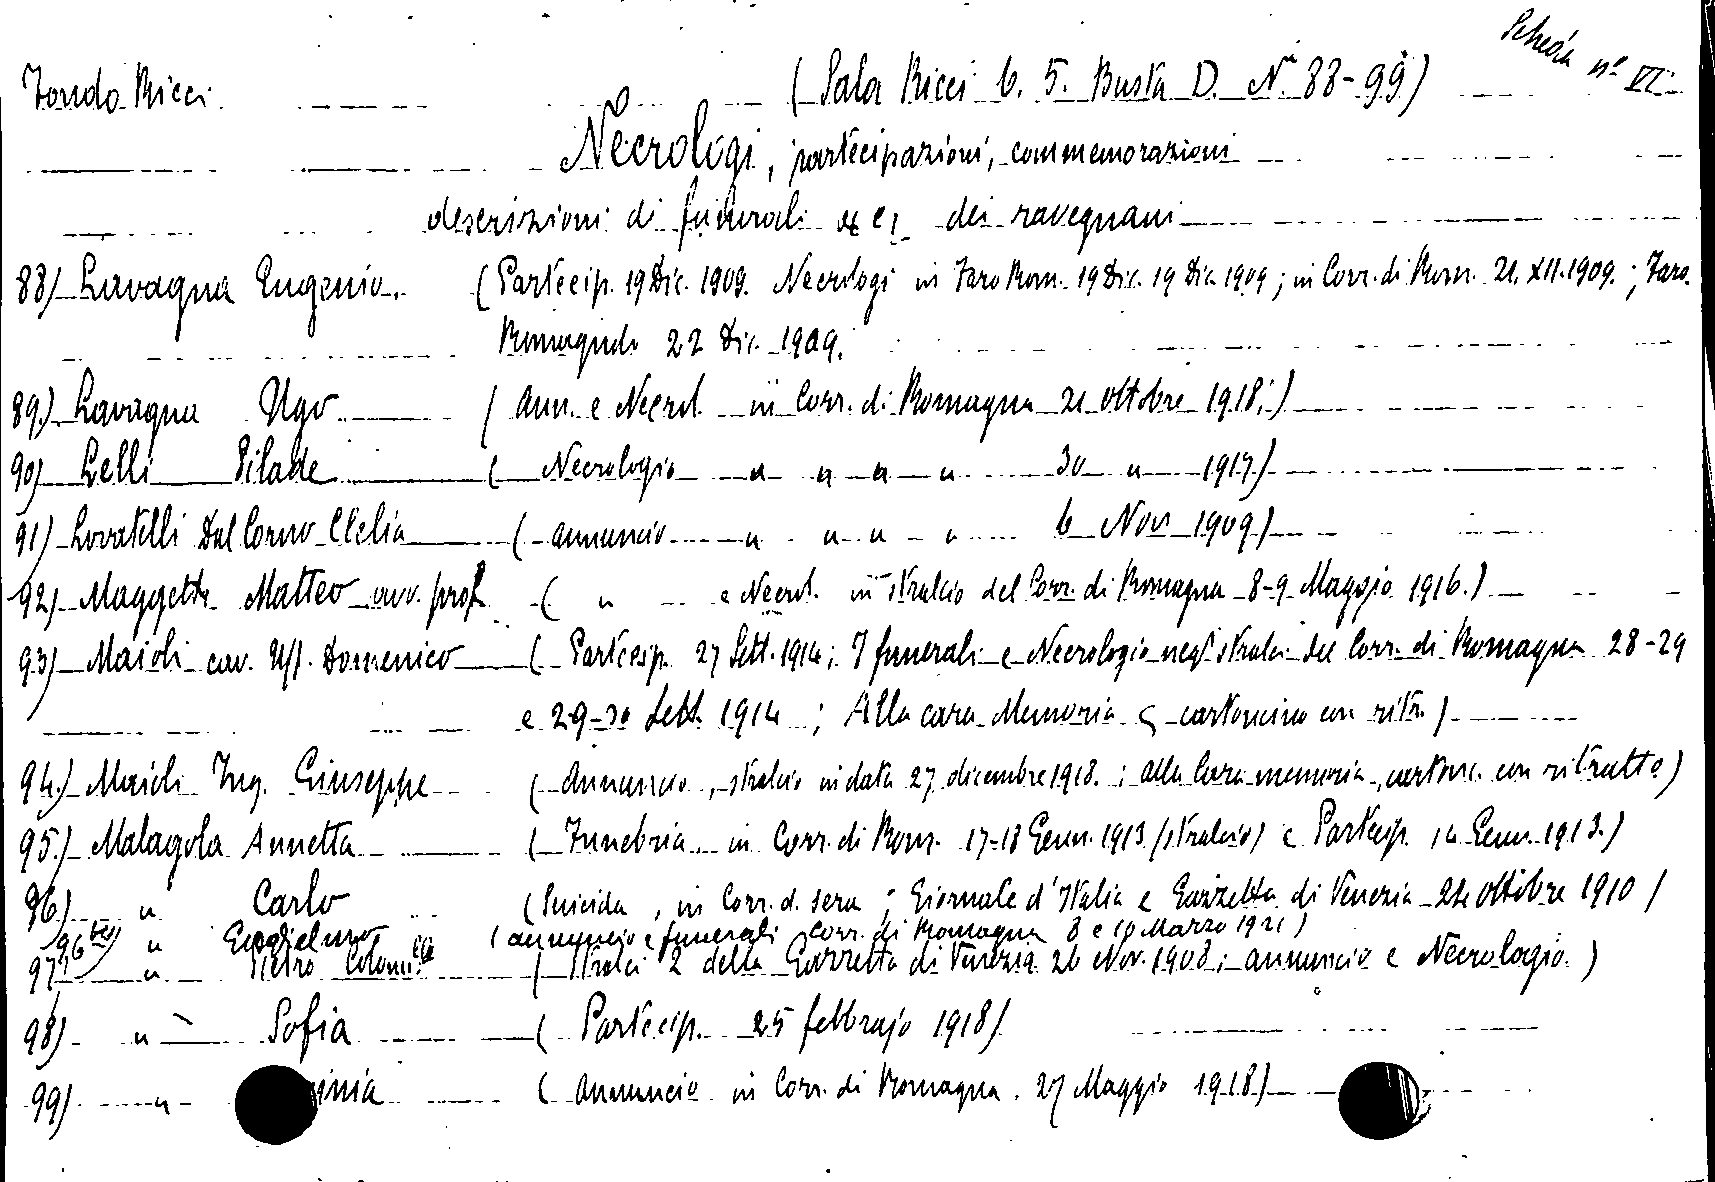 Scheda nº VI
Fondo Ricci (Sala Ricci b. 5. Busta D. N. 88-99)
Necrologi, partecipazioni, commemorazioni
descrizioni di funerali dei ravegnani
88) Lavagna Eugenio. (Partecip. 19 Dic. 1909. Necrologi in Faro Rom. 19 Dic. 19 Dic. 1909; in Corr. di Rom. 21. XII. 1909. ; Faro
Romagnolo 22 Dic. 1909.
89) Lavagna Ugo (Ann. e Necrol. in Corr. di Romagna 21 ottobre 1918;)
90) Lelli Pilade (Necrologio " " " " 30 " 1917)
91) Lovatelli Dal Corno Clelia (annuncio " " " " 6 Nov 1909)
92) Maggetti Matteo avv. prof. ( " e Necrol. in stralcio del Corr. di Romagna 8-9 Maggio 1916.)
93) Maioli cav. Uff. Domenico (Partecip. 27 Sett. 1914; I funerali e Necrologio negli stralci del Corr. di Romagna 28-29
e 29-30 Sett. 1914 ; Alla cara Memoria cartoncino con ritr.)
94) Maioli Ing. Giuseppe (Annuncio, stralcio in data 27 dicembre 1918. ; alla Cara memoria, cartonc. con ritratto)
95) Malagola Annetta (Funebria in Corr. di Rom. 17-18 Genn. 1913 (stralcio) e Partecip. 14 Genn. 1913.)
96) " Carlo (Suicida, in Corr. d. sera ; Giornale d'Italia e Gazzetta di Venezia 24 ottobre 1910)
96 bis) " Guglielmo (annuncio e funerali Corr. di Romagna 8 e 10 Marzo 1921)
97) " Pietro (Stralci 2 della Gazzetta di Venezia 26 Nov. 1908; annuncio e Necrologio.)
98) " Sofia (Partecip. 25 febbrajo 1918)
99) " inia (Annuncio in Corr. di Romagna. 27 Maggio 1918)